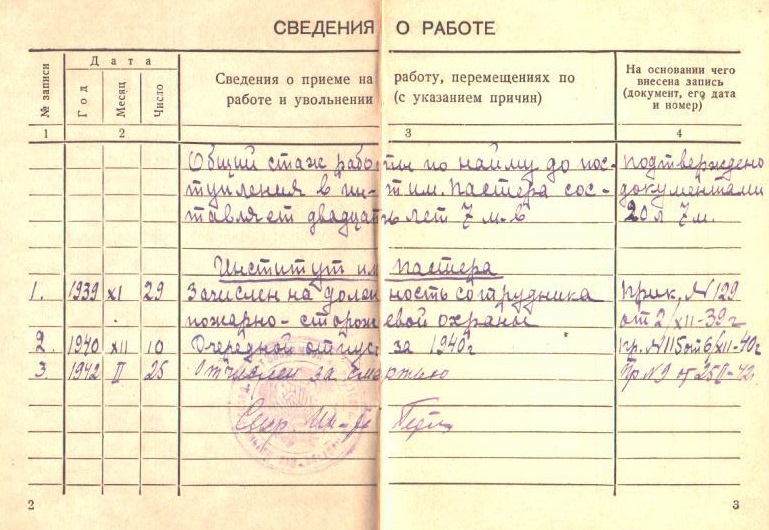 СВЕДЕНИЯ О РАБОТЕ
№ записи
Дата
Год
Месяц
Число
Сведения о приеме на работу, перемещениях по
работе и увольнении (с указанием причин)
На основании чего
внесена запись
(документ, его дата
и номер)
1 2 3 4
Общий стаж работы по найму до пос- Подтверждено
тупления в ин-т им. Пастера сос- документами
тавляет двадцать лет 7 м-в 20 л 7 м.
Институт им Пастера
1. 1939 XI 29 Зачислен на должность сотрудника Прик. N 129
пожарно-сторожевой охраны от 2/XII-39 г
2. 1940 XII 10 Очередной отпуск за 1940 г Пр. N 115 от 6/XII-40 г
3. 1942 II 25 Отчислен за смертью Пр N 9 от 25 II-42
2
3